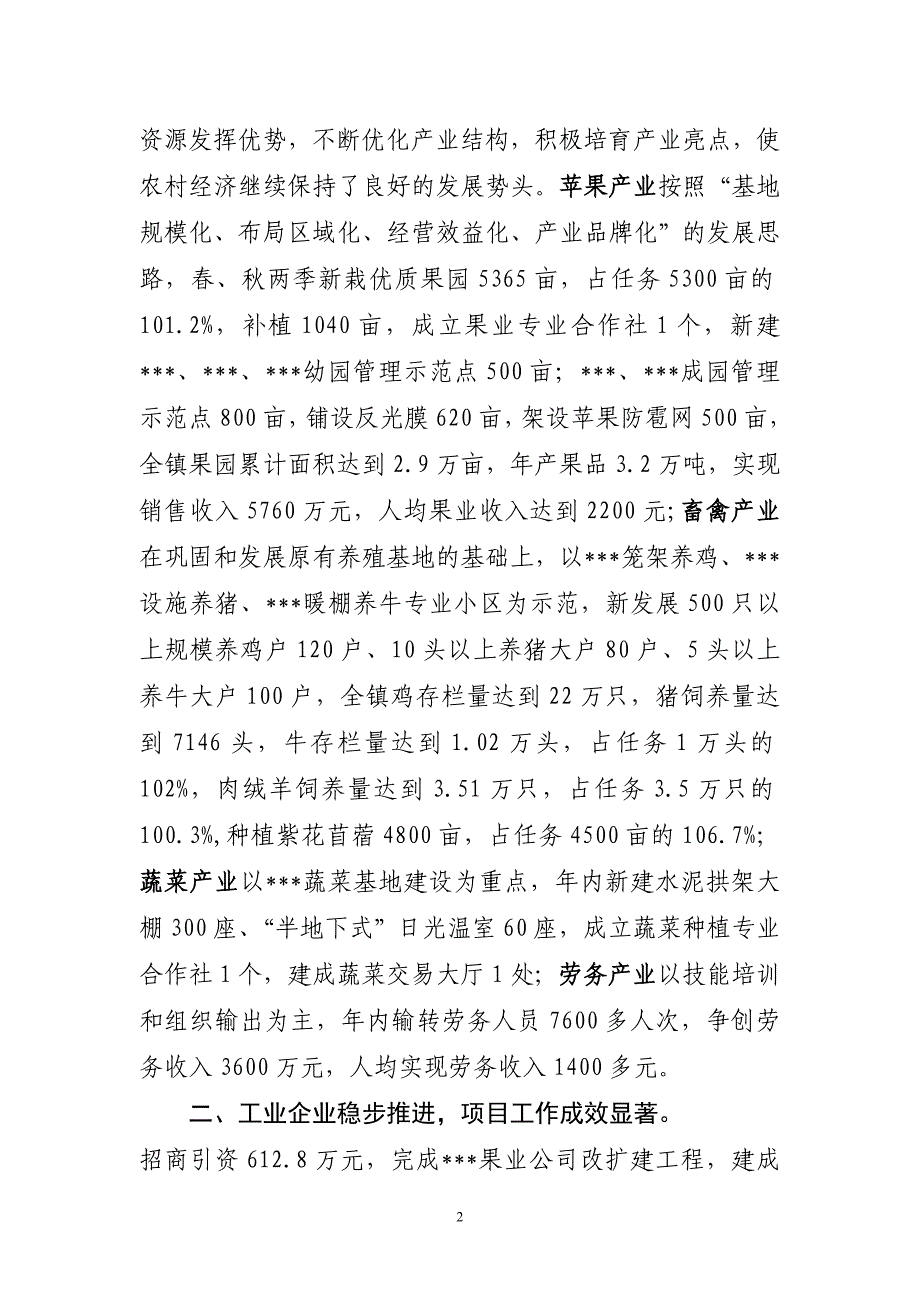 资源发挥优势，不断优化产业结构，积极培育产业亮点，使
农村经济继续保持了良好的发展势头。苹果产业按照“基地
规模化、布局区域化、经营效益化、产业品牌化”的发展思
路，春、秋两季新栽优质果园 5365 亩，占任务 5300 亩的
101.2%，补植 1040 亩，成立果业专业合作社 1 个，新建
***、***、***幼园管理示范点 500 亩；***、***成园管理
示范点 800 亩，铺设反光膜 620 亩，架设苹果防雹网 500 亩，
全镇果园累计面积达到 2.9 万亩，年产果品 3.2 万吨，实现
销售收入 5760 万元，人均果业收入达到 2200 元；畜禽产业
在巩固和发展原有养殖基地的基础上，以***笼架养鸡、***
设施养猪、***暖棚养牛专业小区为示范，新发展 500 只以
上规模养鸡户 120 户、10 头以上养猪大户 80 户、5 头以上
养牛大户 100 户，全镇鸡存栏量达到 22 万只，猪饲养量达
到 7146 头，牛存栏量达到 1.02 万头，占任务 1 万头的
102%，肉绒羊饲养量达到 3.51 万只，占任务 3.5 万只的
100.3%,种植紫花苜蓿 4800 亩，占任务 4500 亩的 106.7%；
蔬菜产业以***蔬菜基地建设为重点，年内新建水泥拱架大
棚 300 座、“半地下式”日光温室 60 座，成立蔬菜种植专业
合作社 1 个，建成蔬菜交易大厅 1 处；劳务产业以技能培训
和组织输出为主，年内输转劳务人员 7600 多人次，争创劳
务收入 3600 万元，人均实现劳务收入 1400 多元。
二、工业企业稳步推进，项目工作成效显著。
招商引资 612.8 万元，完成***果业公司改扩建工程，建成
2